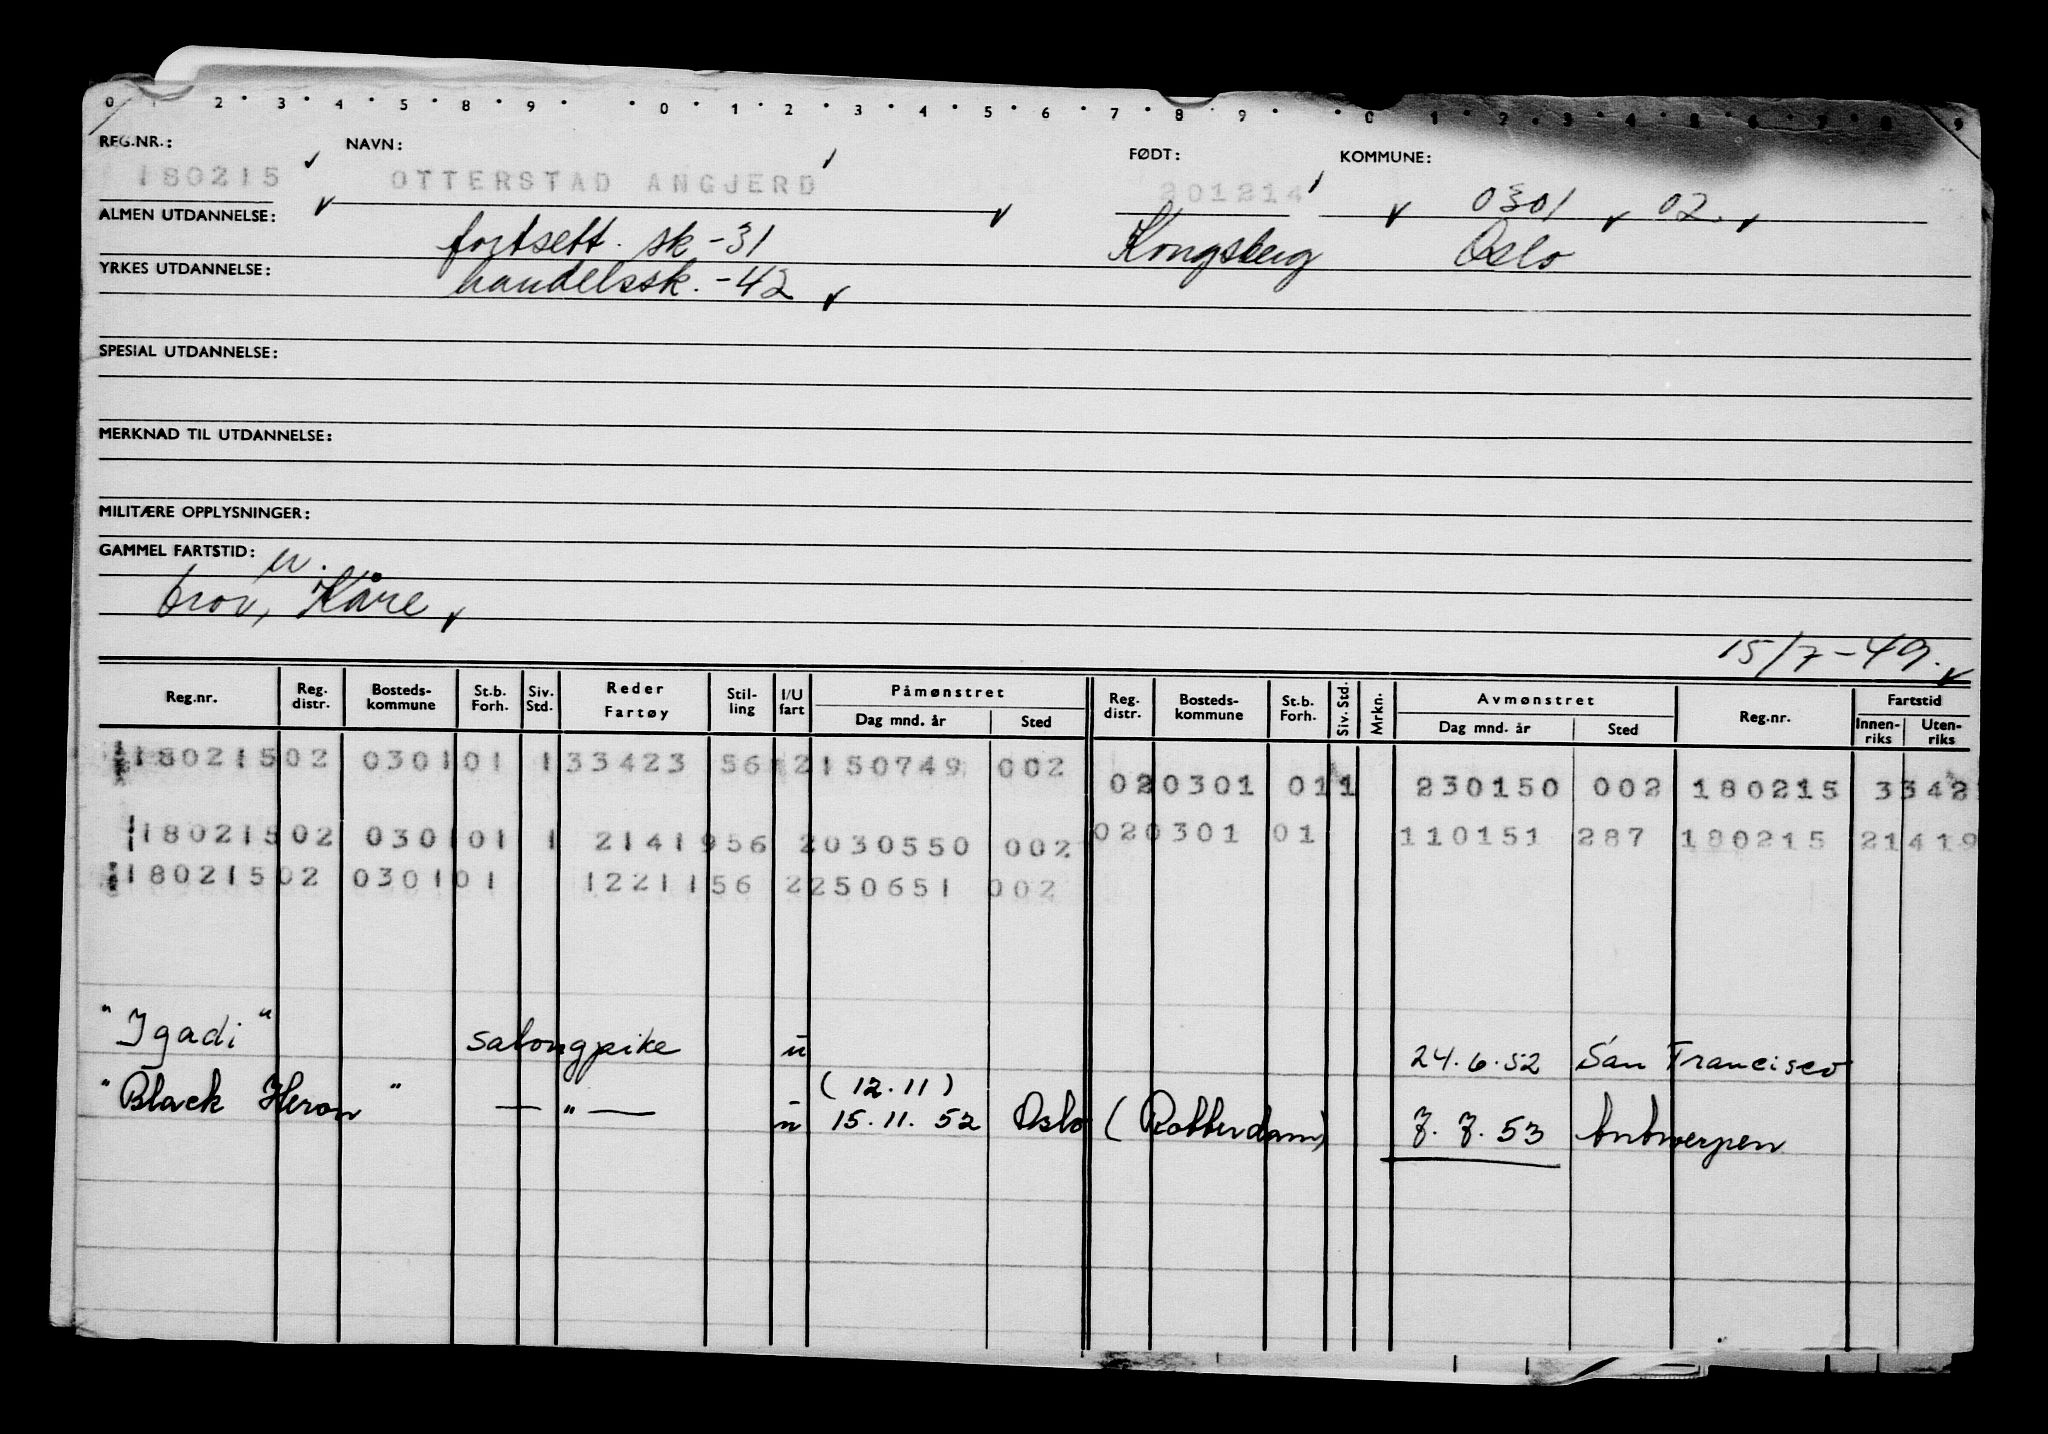 0 1 2 3 4 5 8 9 0 1 2 3 4 5 6 7 8 9 0 1 2 3 4 5 6 7 8 9
REG.NR.: NAVN: FØDT: KOMMUNE:
180215 OTTERSTAD ANGJERD 201214 0301 02.
ALMEN UTDANNELSE: fortsett. sk -31 Kongsberg Oslo
YRKES UTDANNELSE: handelssk. -42
SPESIAL UTDANNELSE:
MERKNAD TIL UTDANNELSE:
MILITÆRE OPPLYSNINGER:
GAMMEL FARTSTID:
bror, Kåre
15/7-49.
Reg.nr. Reg. distr. Bosteds-kommune St.b. Forh. Siv. Std. Reder Fartøy Stil-ling I/U fart Påmønstret Dag mnd. år Sted Reg. distr. Bosteds-kommune St.b. Forh. Siv. Std. Mrkn. Avmønstret Dag mnd. år Sted Reg.nr. Fartstid Innen-riks Uten-riks
180215 02 0301 01 1 33423 56 2 150749 002 02 0301 01 1 230150 002 180215 3342
180215 02 0301 01 1 21419 56 2 030550 002 02 0301 01 110151 287 180215 21419
180215 02 0301 01 12211 56 2 250651 002
"Igadi" salongpike u 24.6.52 San Francisco
(12.11)
"Black Heron" — " — u 15.11.52 Oslo (Rotterdam) 7.7.53 Antwerpen